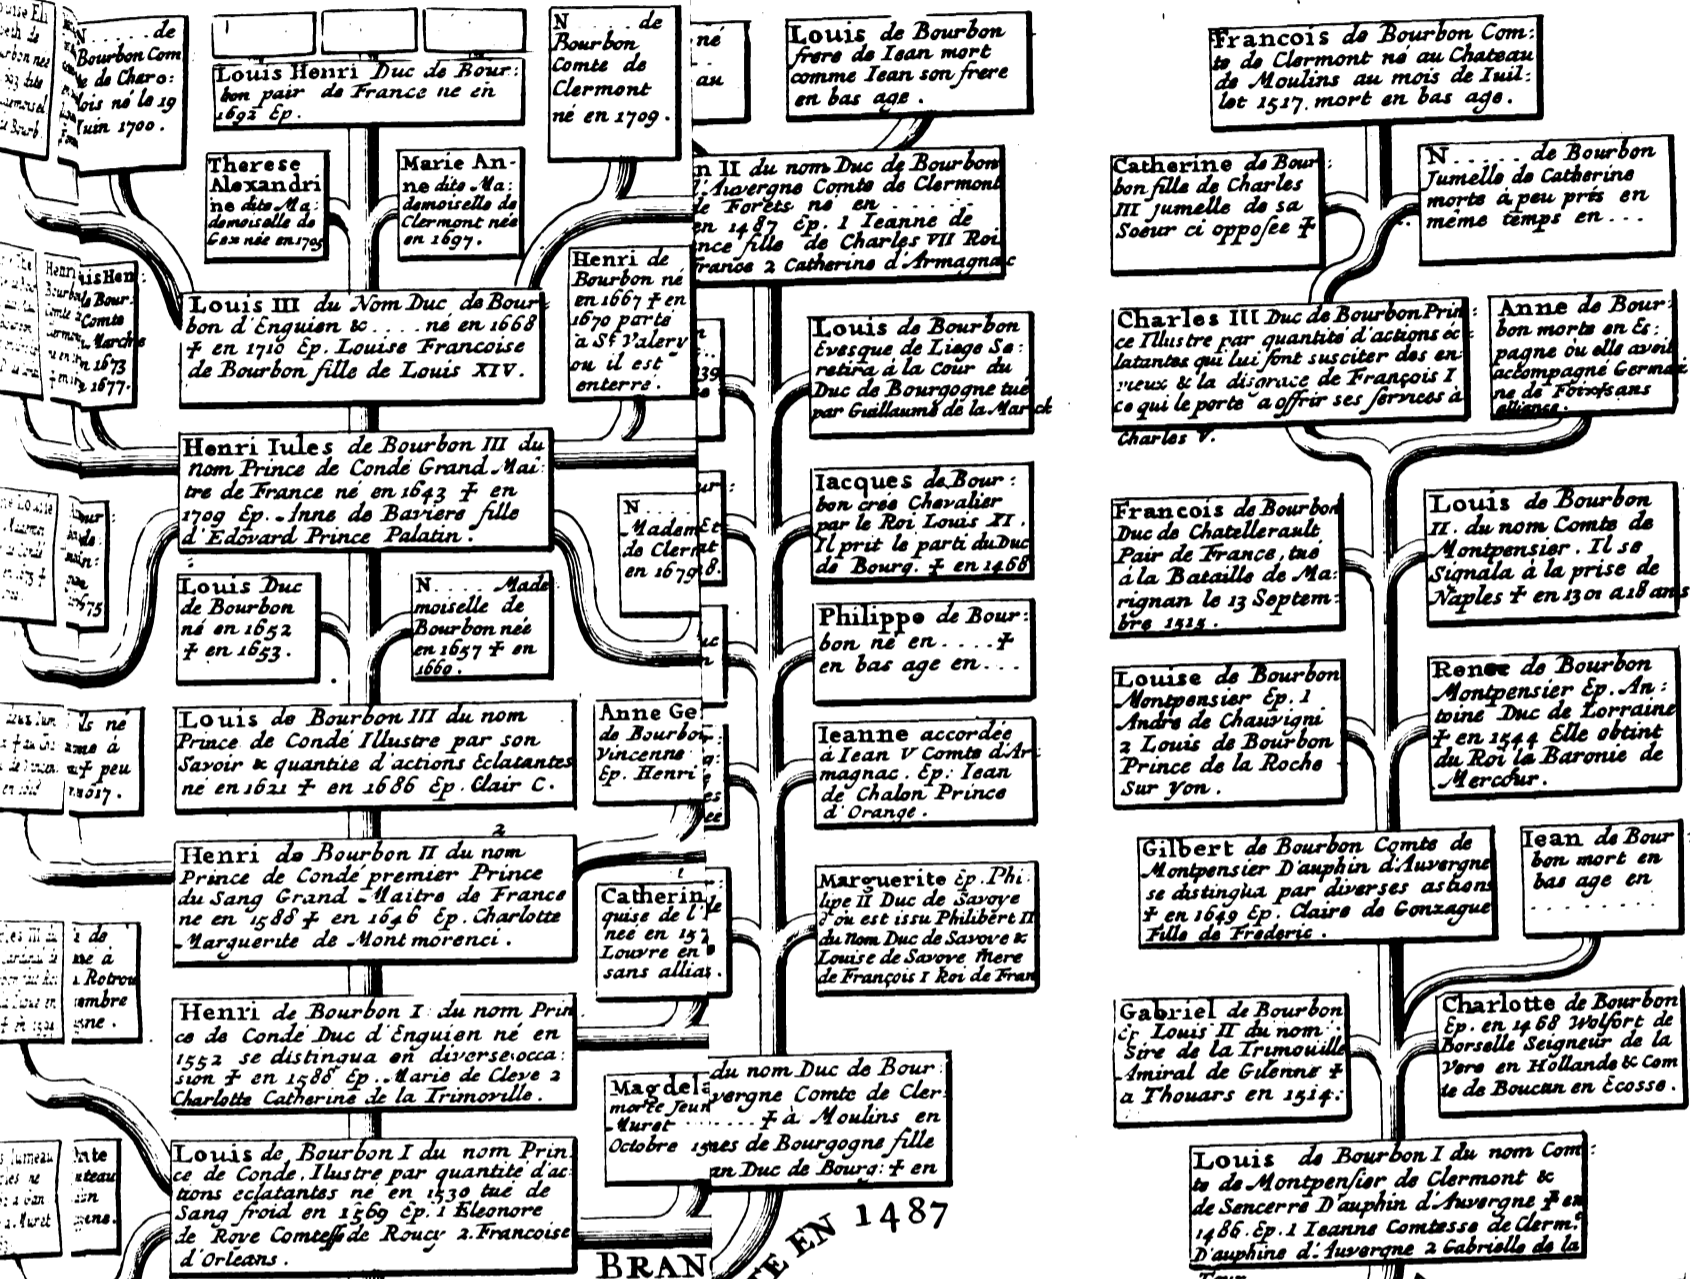 N . . . . . de
Bourbon Com
te de Charo:
lois né le 19
Iuin 1700.
Louis Henri Duc de Bour:
bon pair de France né en
1692 Ep.
N . . . . . de
Bourbon
Comte de
Clermont
né en 1709.
Therese
Alexandri
ne dite Ma:
demoiselle de
Gex née en 1705
Marie An-
ne dite Ma:
demoiselle de
Clermont née
en 1697.
Louis III du Nom Duc de Bour:
bon d'Enguien &c. . . . né en 1668
✝ en 1710 Ep. Louise Francoise
de Bourbon fille de Louis XIV.
Henri de
Bourbon né
en 1667 ✝ en
1670 porté
a St Valery
ou il est
enterré.
Henri Iules de Bourbon III du
nom Prince de Condé Grand Mai:
tre de France né en 1643 ✝ en
1709 Ep. Anne de Baviere fille
d'Edovard Prince Palatin.
N . . . .
Madem
de Cler
en 1679
Louis Duc
de Bourbon
né en 1652
✝ en 1653.
N . . . . Made
moiselle de
Bourbon née
en 1657 ✝ en
1660.
Louis de Bourbon III du nom
Prince de Condé Illustre par son
Savoir & quantité d'actions Eclatantes
né en 1621 ✝ en 1686 Ep. Clair C.
Anne Ge
de Bourbon
Vincenne
Ep. Henri
2
Henri de Bourbon II du nom
Prince de Condé premier Prince
du Sang Grand Maitre de France
ne en 1588 ✝ en 1646 Ep. Charlotte
Marguerite de Montmorenci.
Catherin
quise de l'
née en 157
Louvre en
sans allia
Henri de Bourbon I du nom Prin
ce de Condé Duc d'Enguien né en
1552 se distingua en diverse occa:
sion ✝ en 1588 Ep. Marie de Cleve 2
Charlotte Catherine de la Trimoville.
Magdela
morte Jeun
Muret
Octobre 15
Louis de Bourbon I du nom Prin
ce de Condé. Ilustre par quantité d'ac
tions eclatantes né en 1530 tué de
Sang froid en 1569 Ep. 1 Eleonore
de Roye Comtesse de Roucy 2. Francoise
d'Orleans.
BRAN
Louis de Bourbon
frere de Iean mort
comme Iean son frere
en bas age.
n II du nom Duc de Bourbon
d'Auvergne Comte de Clermont
de Forêts né en . . . . . .
en 1487 Ep. 1 Ieanne de
nce fille de Charles VII Roi
France 2 Catherine d'Armagnac
Louis de Bourbon
Evesque de Liege Se:
retira à la Cour du
Duc de Bourgogne tué
par Guillaume de la Marck
Iacques de Bour:
bon créé Chevalier
par le Roi Louis XI.
Il prit le parti du Duc
de Bourg. ✝ en 1468
Philippe de Bour:
bon né en . . . . ✝
en bas age en . . .
Ieanne accordée
à Iean V Comte d'Ar
magnac. Ep: Iean
de Chalon Prince
d'Orange.
Marguerite Ep. Phi
lipe II Duc de Savoye
d'ou est issu Philibert II
du nom Duc de Savoye &
Louise de Savoye Mere
de François I Roi de Fran
du nom Duc de Bour:
vergne Comte de Cler
✝ à Moulins en
nes de Bourgogne fille
an Duc de Bourg: ✝ en
TE EN 1487
Francois de Bourbon Com:
te de Clermont né au Chateau
de Moulins au mois de Iuil:
let 1517. mort en bas age.
Catherine de Bour:
bon fille de Charles
III jumelle de sa
Soeur ci opposée ✝
N . . . . . . de Bourbon
Jumelle de Catherine
morte à peu prés en
même têmps en . . .
Charles III Duc de Bourbon Prin:
ce Illustre par quantité d'actions éc
latantes qui lui font susciter des en
vieux & la disgrace de François I
ce qui le porte a offrir ses services à
Charles V.
Anne de Bour:
bon morte en Es:
pagne ou elle avoit
accompagné Germai
ne de Foix sans
alliance.
Francois de Bourbon
Duc de Chatellerault
Pair de France, tué
à la Bataille de Ma:
rignan le 13 Septem:
bre 1515.
Louis de Bourbon
II. du nom Comte de
Montpensier. Il se
Signala à la prise de
Naples ✝ en 1301 a 18 ans
Louise de Bourbon
Montpensier Ep. 1
André de Chauvigni
2 Louis de Bourbon
Prince de la Roche
Sur Yon.
Renee de Bourbon
Montpensier Ep. An:
toine Duc de Lorraine
✝ en 1544 Elle obtint
du Roi la Baronie de
Mercœur.
Gilbert de Bourbon Comte de
Montpensier D'auphin d'Auvergne
se distingua par diverses astions
✝ en 1649 Ep. Claire de Gonzague
Fille de Frederic.
Iean de Bour
bon mort en
bas age en
. . . . . . . .
Gabriel de Bourbon
Ep Louis II du nom
Sire de la Trimouille
Amiral de Guenne ✝
a Thouars en 1514.
Charlotte de Bourbon
Ep. en 1468 Wolfort de
Borselle Seigneur de la
Vere en Hollande & Com
te de Boucan en Ecosse.
Louis de Bourbon I du nom Com:
te de Montpensier de Clermont &
de Sencerre D'auphin d'Auvergne ✝ en
1486. Ep. 1 Ieanne Comtesse de Clerm:
D'auphine d'Auvergne 2 Gabrielle de la
Tour